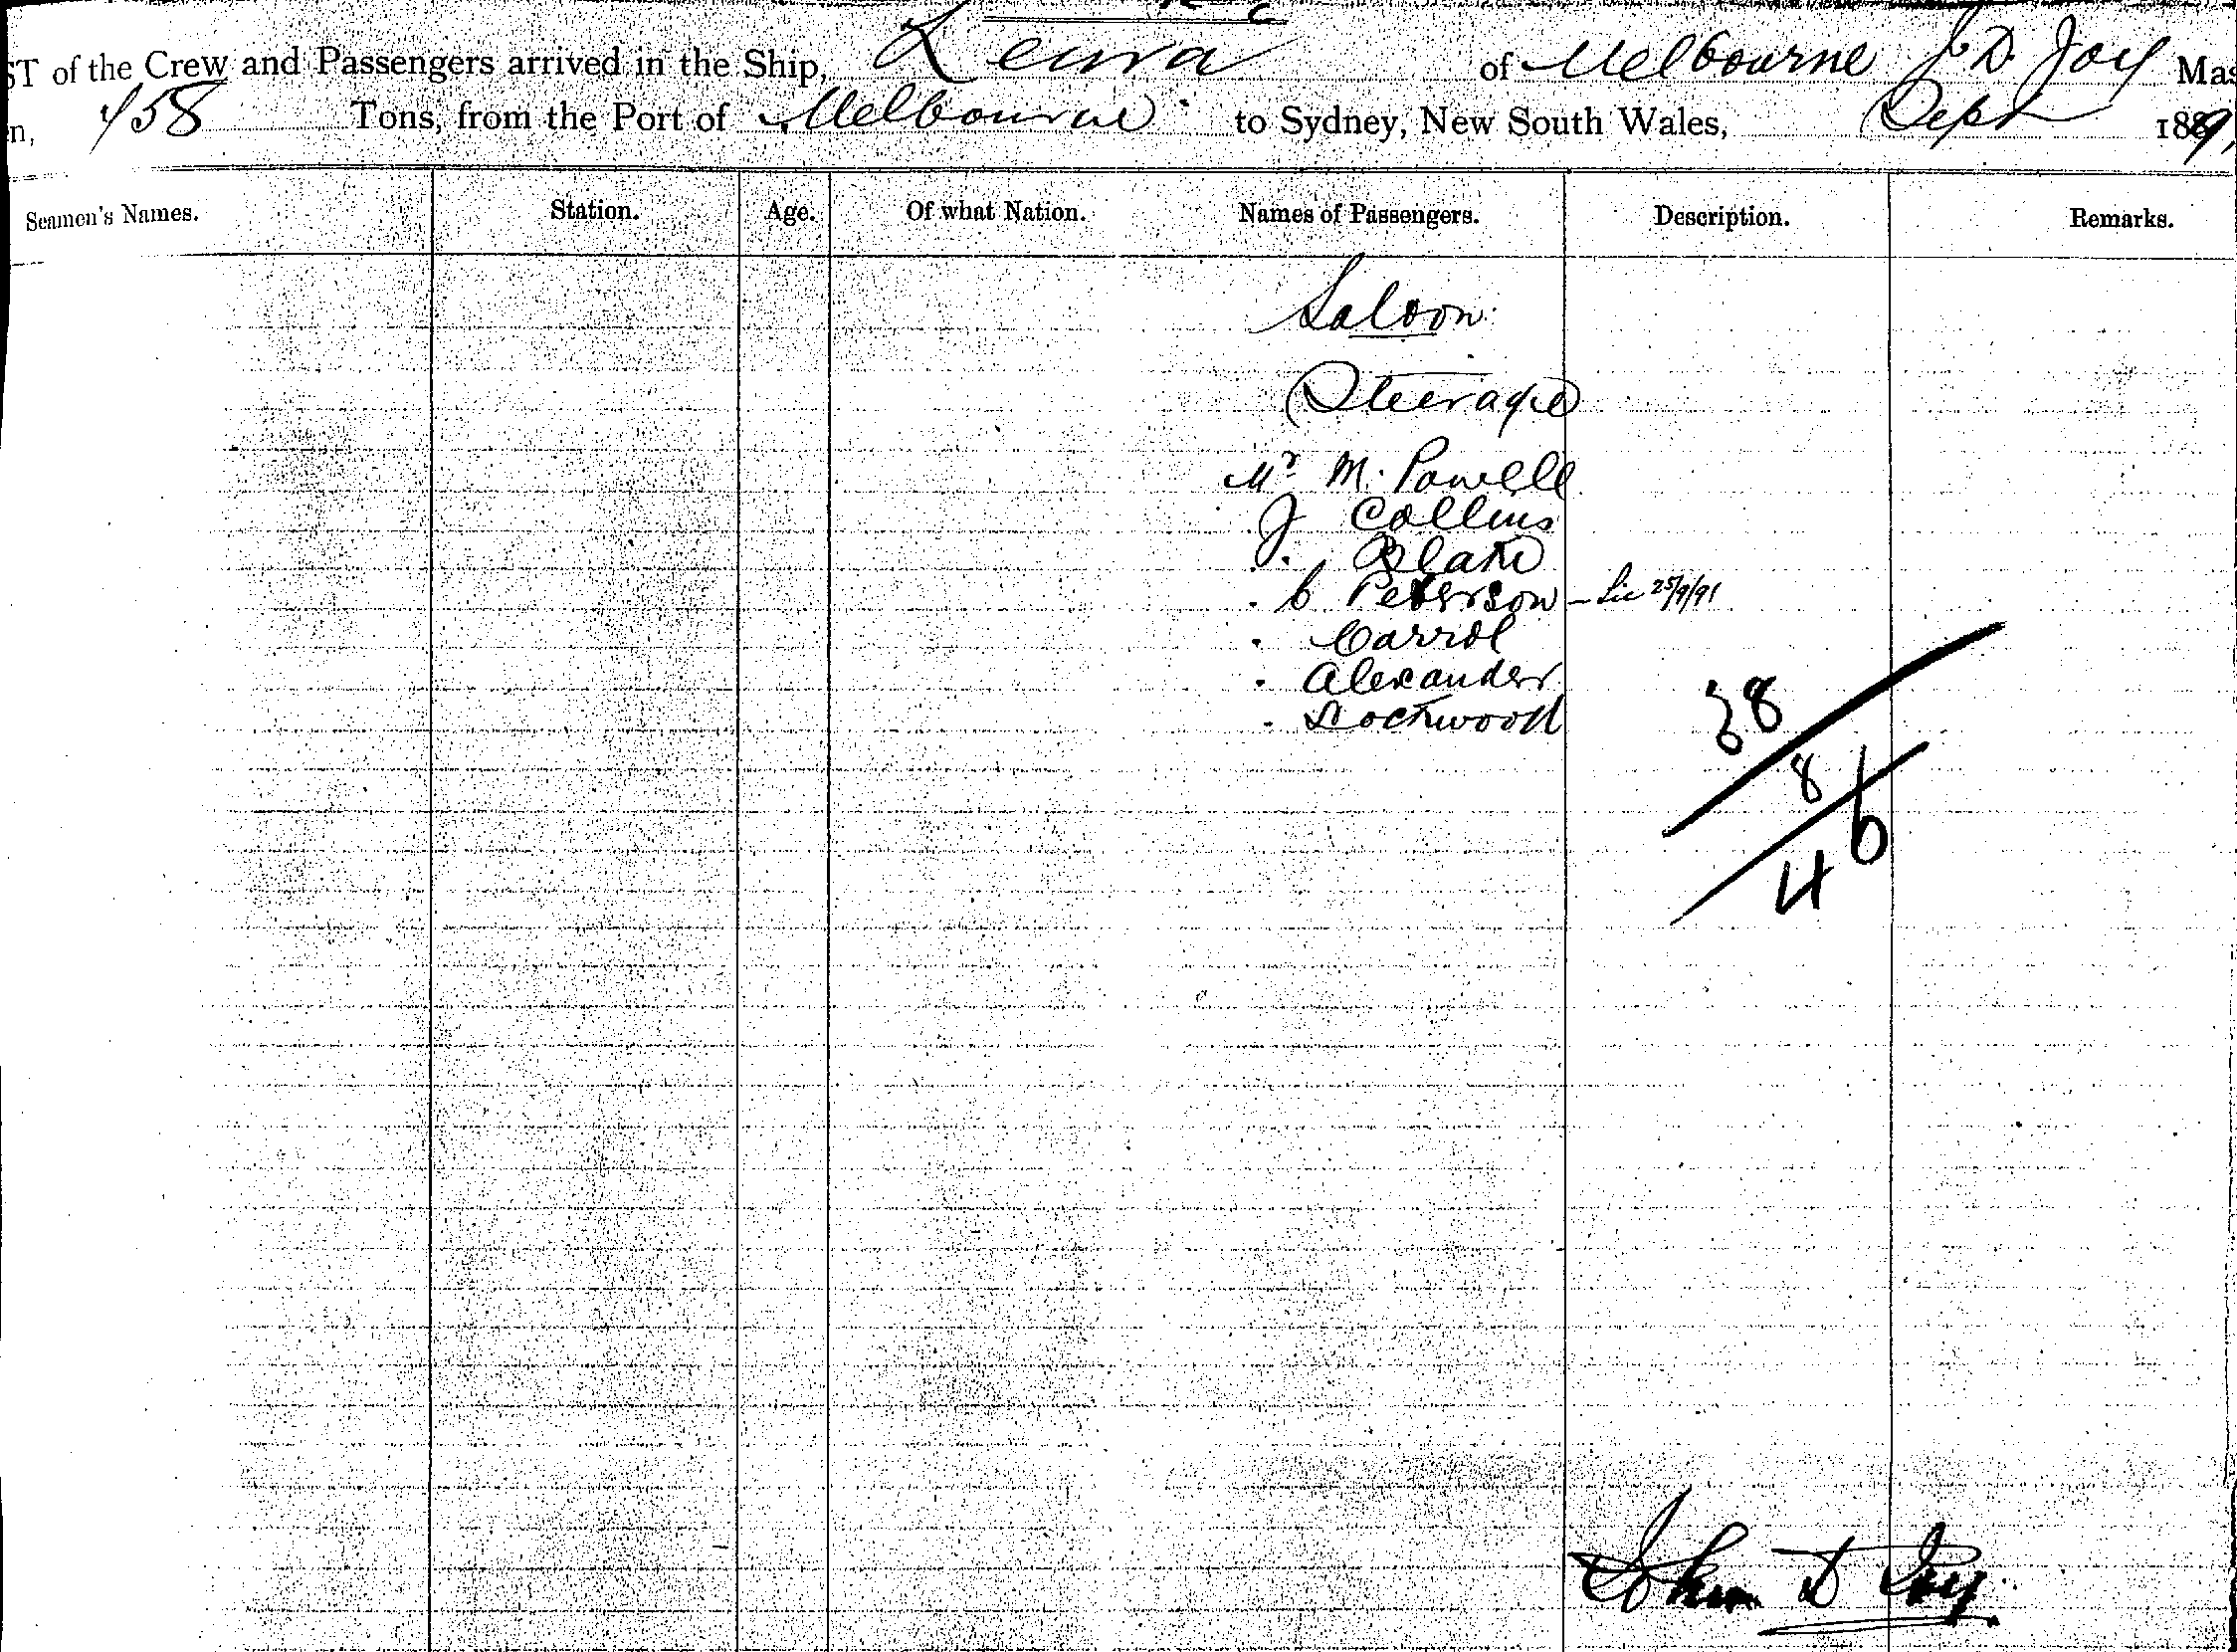 ST of the Crew and Passengers arrived in the Ship, Leura of Melbourne J. D. Joy Mas
n, 458 Tons, from the Port of Melbourne to Sydney, New South Wales, Sept 1889,
Seamen's Names. Station. Age. Of what Nation. Names of Passengers. Description. Remarks.
Saloon
Steerage
Mr M. Powell
J Collins
Blake
C Peterson - Lic 25/9/91
Carrol
Alexander
Lockwood
38
8
46
John D Joy